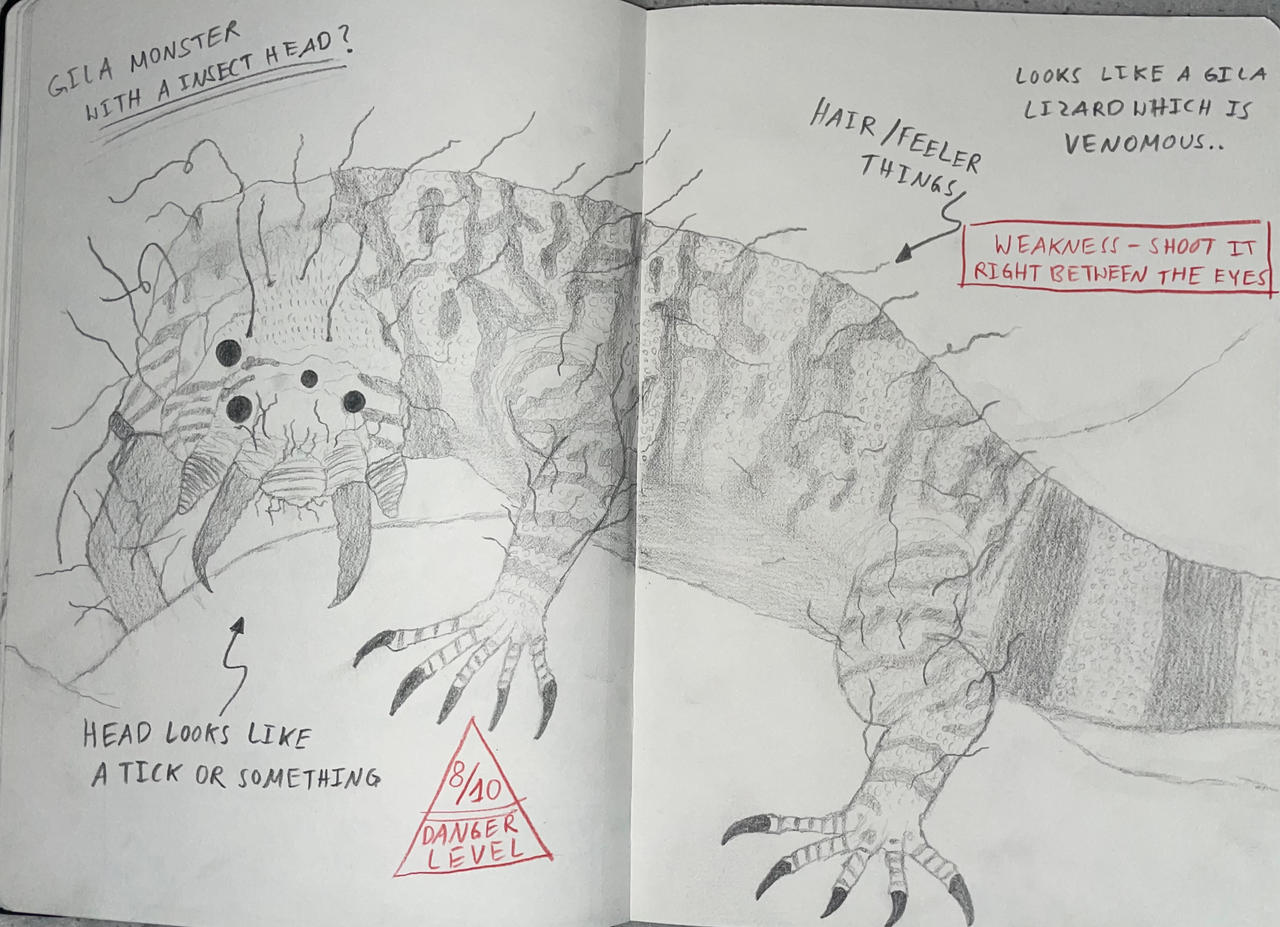 GILA MONSTER
WITH A INSECT HEAD?
HEAD LOOKS LIKE
A TICK OR SOMETHING
8/10
DANGER
LEVEL
HAIR/FEELER
THINGS
LOOKS LIKE A GILA
LIZARD WHICH IS
VENOMOUS..
WEAKNESS - SHOOT IT
RIGHT BETWEEN THE EYES